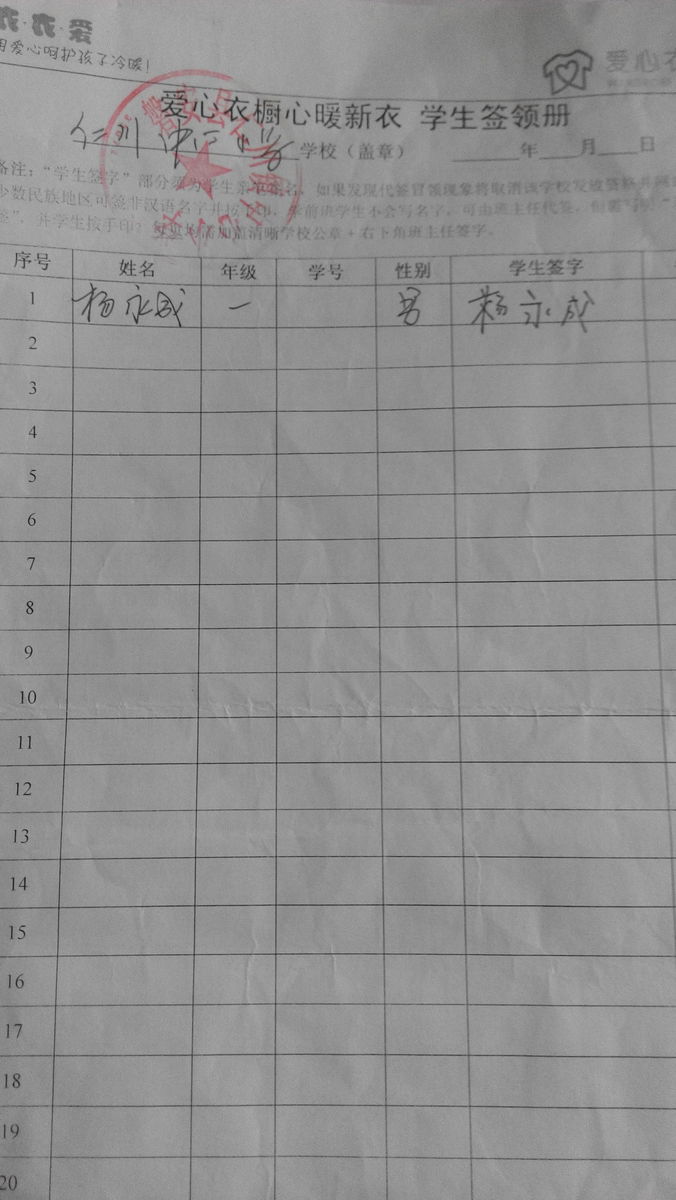 爱心衣
用爱心呵护孩子冷暖!
爱心衣橱心暖新衣 学生签领册
仁川中心小学 学校（盖章） 年 月 日
备注："学生签字"部分须为学生亲笔签名，如果发现代签冒领现象将取消该学校发放资格并
少数民族地区可签非汉语名字并按手印，学前班学生不会写名字，可由班主任代签，但需写明"
签"，并学生按手印？每页均需加盖清晰学校公章+右下角班主任签字。
序号 姓名 年级 学号 性别 学生签字
1 杨永成 一 男 杨永成
2
3
4
5
6
7
8
9
10
11
12
13
14
15
16
17
18
19
20